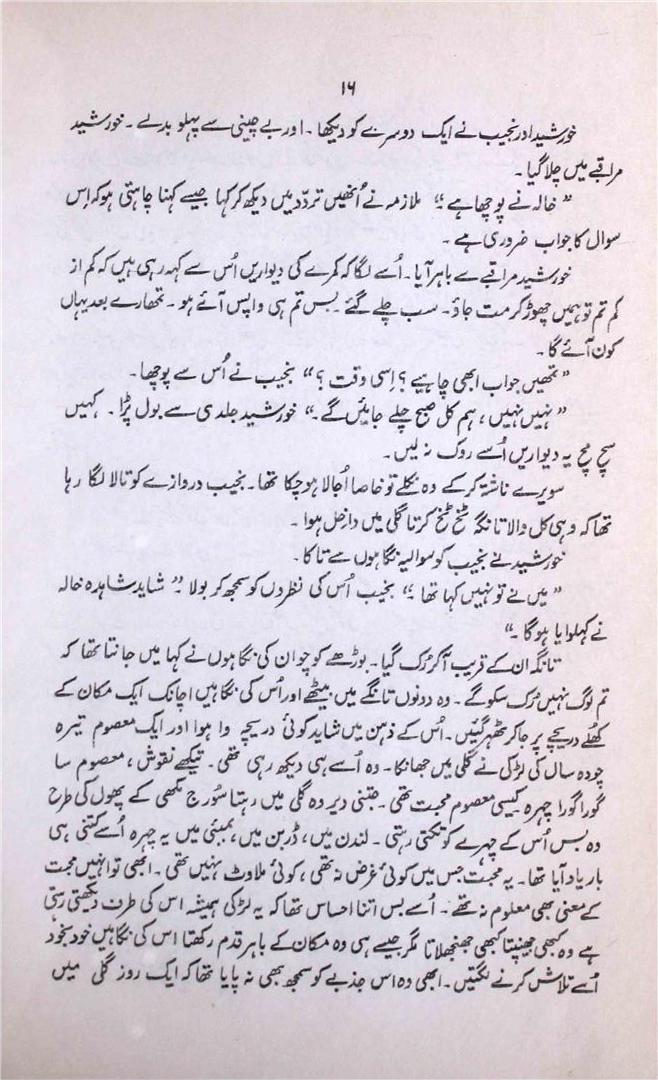 ۱۶
خورشید اور نجیب نے ایک دوسرے کو دیکھا ۔ اور بے چینی سے پہلو بدلے ۔ خورشید
مراقبے میں چلا گیا ۔
” خالہ نے پوچھا ہے ۔“ ملازمہ نے اُنھیں تردّد میں دیکھ کر کہا جیسے کہنا چاہتی ہو کہ اِس
سوال کا جواب ضروری ہے ۔
خورشید مراقبے سے باہر آیا ۔ اُسے لگا کہ کمرے کی دیواریں اُس سے کہہ رہی ہیں کہ کم از
کم تم تو ہمیں چھوڑ کر مت جاؤ ۔ سب چلے گئے ۔ بس تم ہی واپس آئے ہو ۔ تمھارے بعد یہاں
کون آئے گا ۔
” تمھیں جواب ابھی چاہیے ؟ اِسی وقت ؟ “ نجیب نے اُس سے پوچھا ۔
” نہیں نہیں ، ہم کل صبح چلے جائیں گے ۔“ خورشید جلدی سے بول پڑا ۔ کہیں
سچ مچ یہ دیواریں اُسے روک نہ لیں ۔
سویرے ناشتہ کرکے وہ نکلے تو خاصا اُجالا ہوچکا تھا ۔ نجیب دروازے کو تالا لگا رہا
تھا کہ وہی کل والا تانگہ ٹخ ٹخ کرتا گلی میں داخل ہوا ۔
خورشید نے نجیب کو سوالیہ نگاہوں سے تاکا ۔
” میں نے تو نہیں کہا تھا ۔“ نجیب اُس کی نظروں کو سمجھ کر بولا ۔” شاید شاہدہ خالہ
نے کہلوایا ہوگا ۔“
تانگہ ان کے قریب آکر رُک گیا ۔ بوڑھے کوچوان کی نگاہوں نے کہا میں جانتا تھا کہ
تم لوگ نہیں رُک سکوگے ۔ وہ دونوں تانگے میں بیٹھے اور اُس کی نگاہیں اچانک ایک مکان کے
کھُلے دریچے پر جاکر ٹھہر گئیں ۔ اُس کے ذہن میں شاید کوئی دریچہ وا ہوا اور ایک معصوم تیرہ
چودہ سال کی لڑکی نے گلی میں جھانکا ۔ وہ اُسے ہی دیکھ رہی تھی ۔ تیکھے نقوش ، معصوم سا
گورا گورا چہرہ کیسی معصوم محبت تھی ۔ جتنی دیر وہ گلی میں رہتا سُورج مُکھی کے پھول کی طرح
وہ بس اُس کے چہرے کو تکتی رہتی ۔ لندن میں ، ڈربن میں ، بمبئی میں یہ چہرہ اُسے کتنی ہی
بار یاد آیا تھا ۔ یہ محبت جس میں کوئی غرض نہ تھی ، کوئی ملاوٹ نہیں تھی ۔ ابھی تو انہیں محبت
کے معنی بھی معلوم نہ تھے ۔ اُسے بس اتنا احساس تھا کہ یہ لڑکی ہمیشہ اس کی طرف دیکھتی رہتی
ہے وہ کبھی جھینپتا کبھی جھنجھلاتا مگر جیسے ہی وہ مکان کے باہر قدم رکھتا اس کی نگاہیں خودبخود
اُسے تلاش کرنے لگتیں ۔ ابھی وہ اس جذبے کو سمجھ بھی نہ پایا تھا کہ ایک روز گلی میں